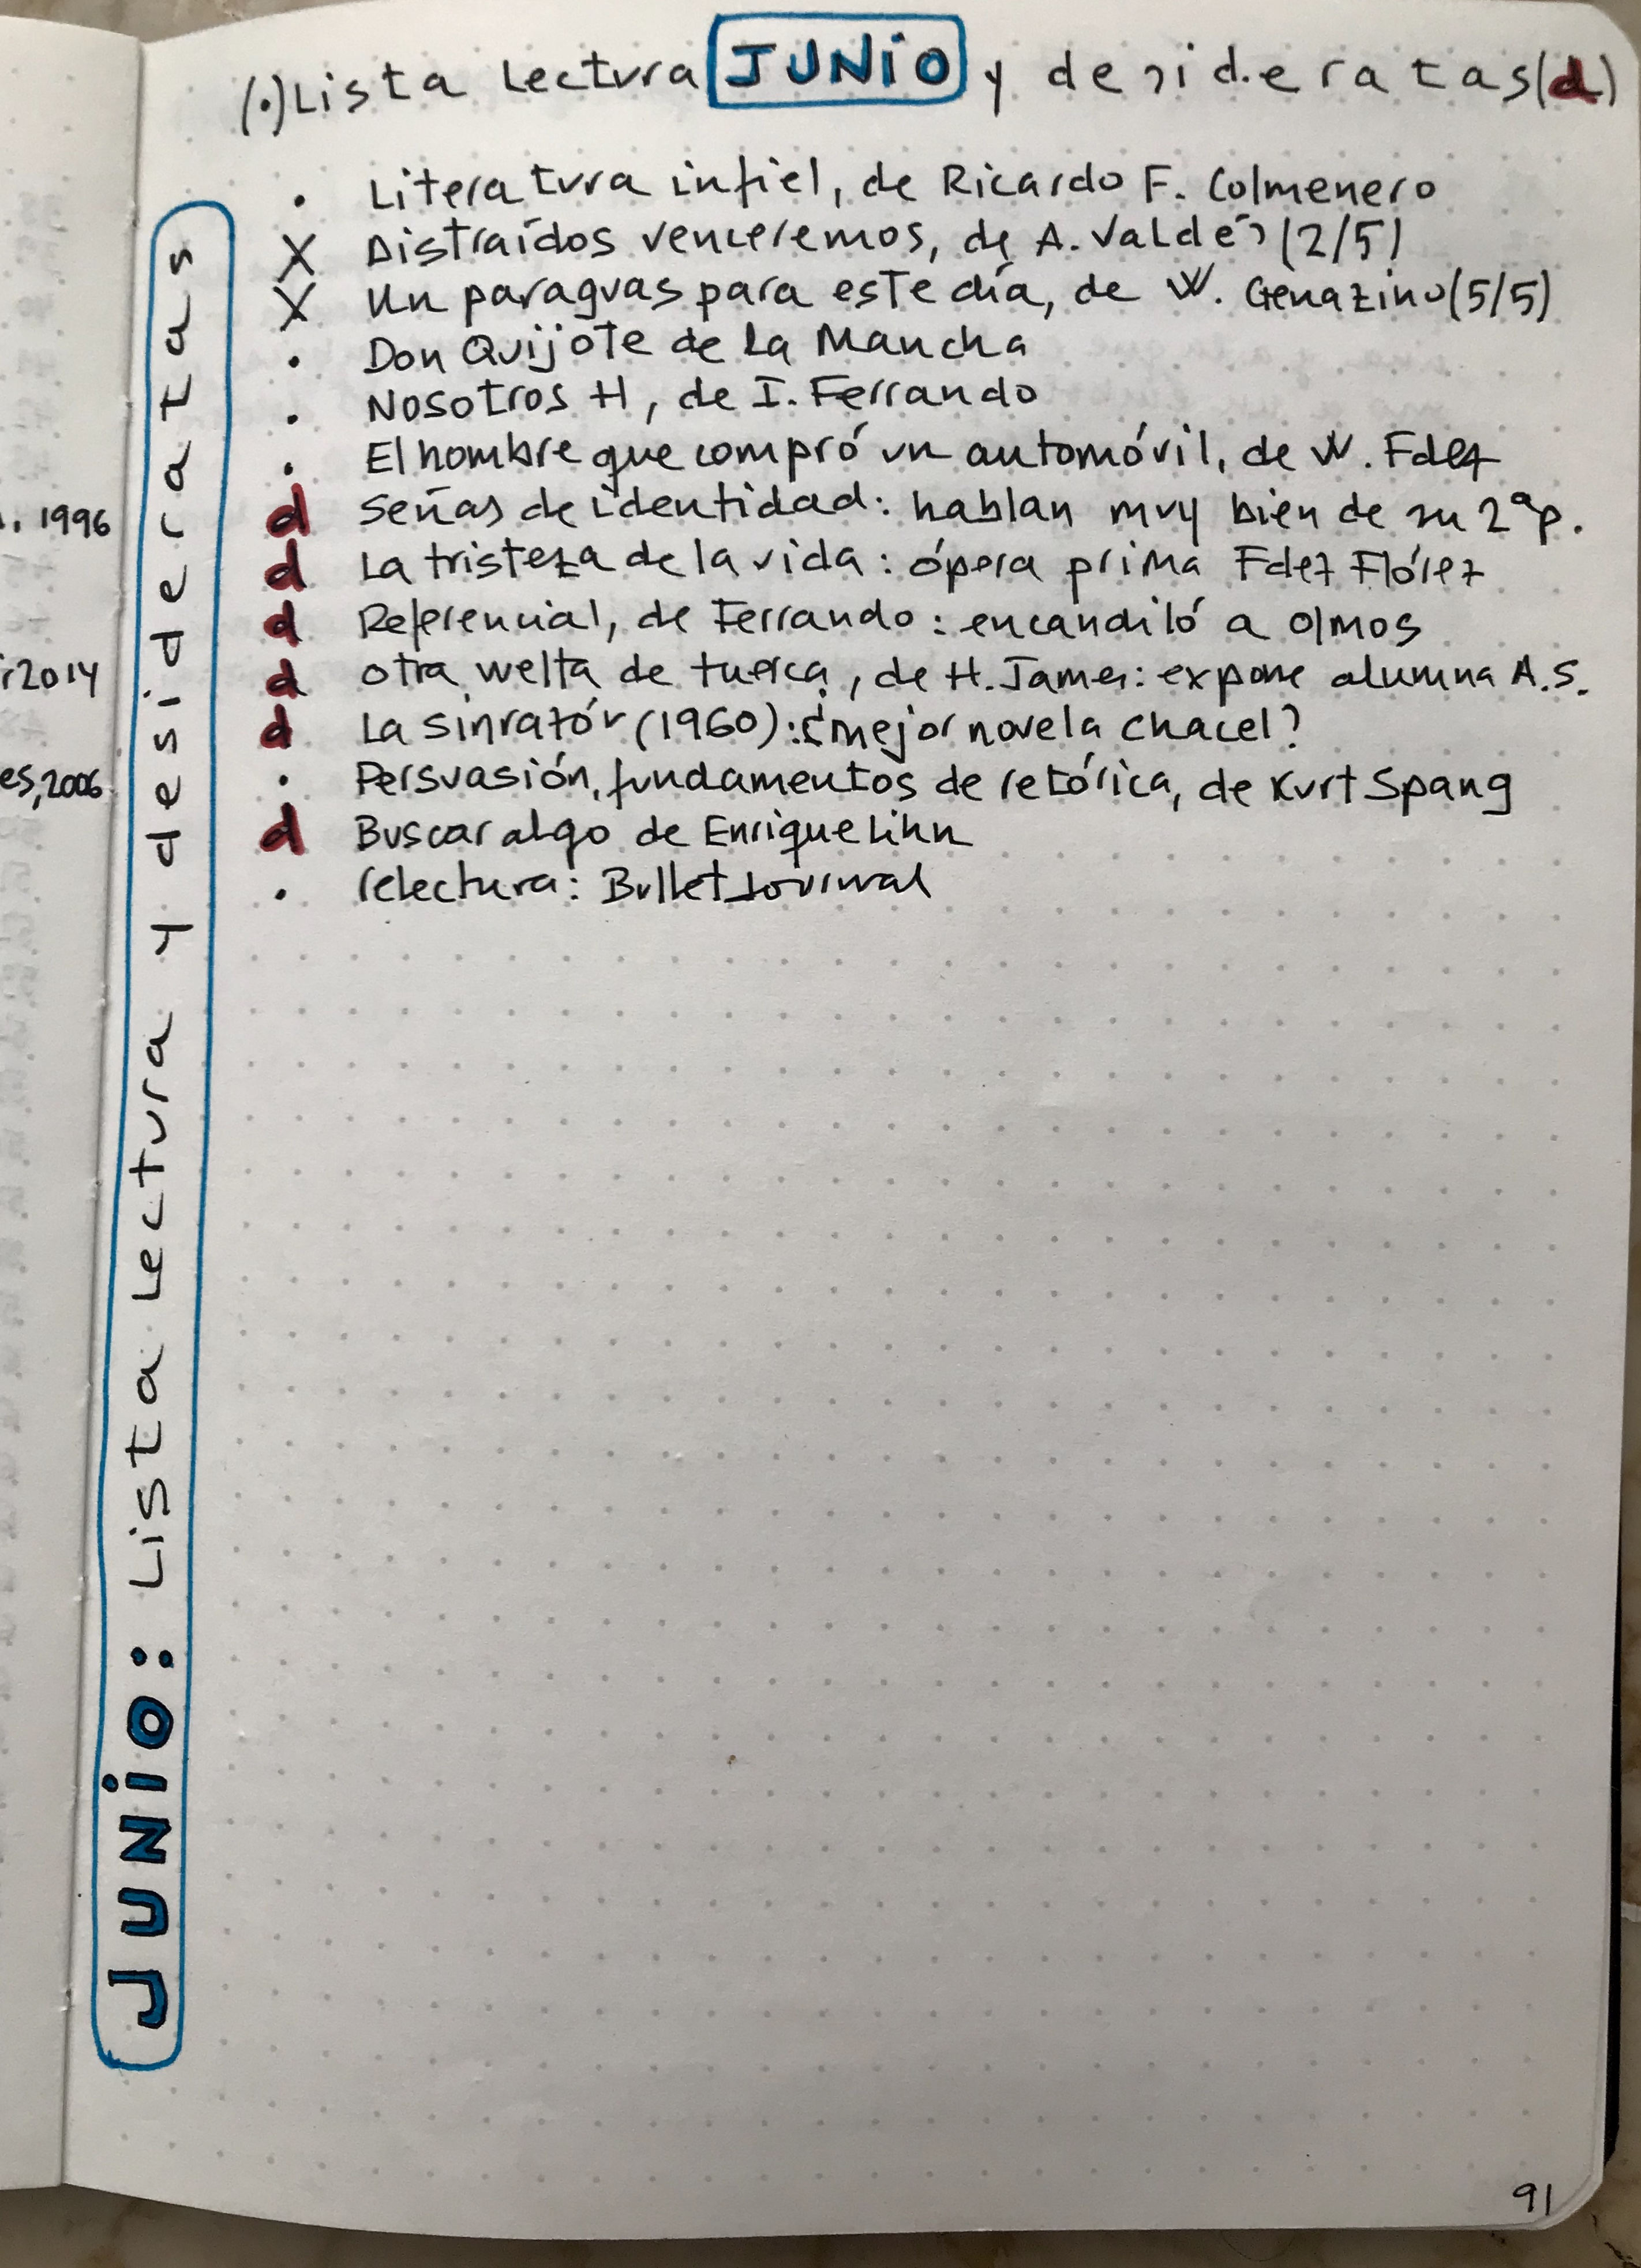 (.) Lista Lectura JUNIO y desideratas (d)
. Literatura infiel, de Ricardo F. Colmenero
X Distraídos venceremos, de A. Valdés (2/5)
X Un paraguas para este día, de W. Genazino (5/5)
. Don Quijote de La Mancha
. Nosotros H, de I. Ferrando
. El hombre que compró un automóvil, de W. Fdez
d Señas de identidad: hablan muy bien de su 2ª p.
d La tristeza de la vida: ópera prima Fdez Flórez
d Referencial, de Ferrando: encandiló a Olmos
d Otra vuelta de tuerca, de H. James: expone alumna A.S.
d La sinrazón (1960): ¿mejor novela Chacel?
. Persuasión, fundamentos de retórica, de Kurt Spang
d Buscar algo de Enrique Lihn
. relectura: Bullet Journal
JUNIO: Lista Lectura y desideratas
. 1996
2014
es, 2006
91